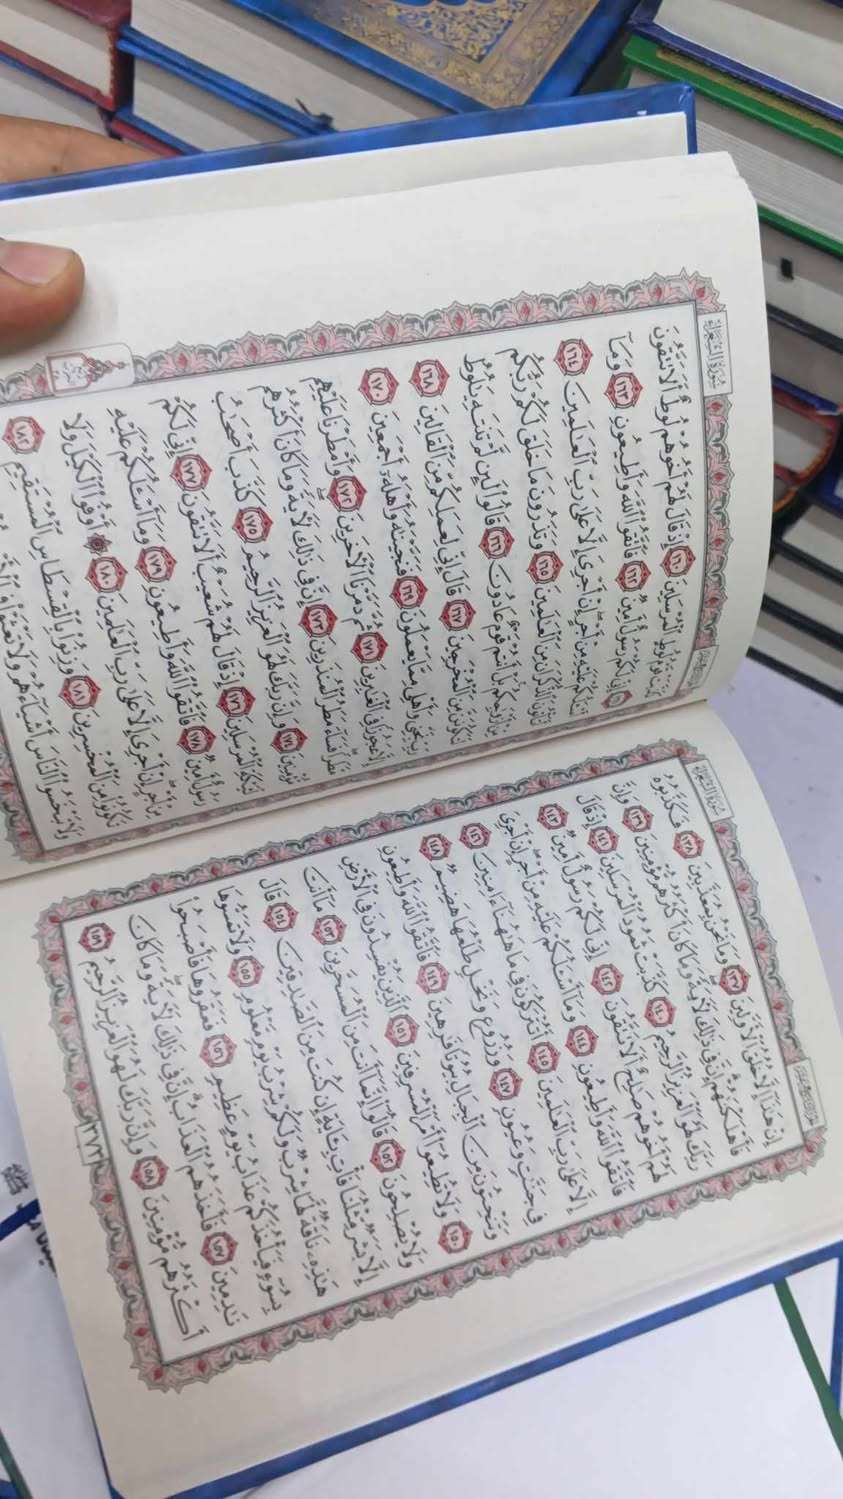 سُورَةُ الشُّعَرَاءِ
إِنْ هَٰذَآ إِلَّا خُلُقُ ٱلْأَوَّلِينَ ١٣٧ وَمَا نَحْنُ بِمُعَذَّبِينَ ١٣٨ فَكَذَّبُوهُ
فَأَهْلَكْنَٰهُمْ إِنَّ فِي ذَٰلِكَ لَأٓيَةً وَمَا كَانَ أَكْثَرُهُم مُّؤْمِنِينَ ١٣٩ وَإِنَّ
رَبَّكَ لَهُوَ ٱلْعَزِيزُ ٱلرَّحِيمُ ١٤٠ كَذَّبَتْ ثَمُودُ ٱلْمُرْسَلِينَ ١٤١ إِذْ قَالَ
لَهُمْ أَخُوهُمْ صَٰلِحٌ أَلَا تَتَّقُونَ ١٤٢ إِنِّي لَكُمْ رَسُولٌ أَمِينٌ ١٤٣
فَٱتَّقُوا۟ ٱللَّهَ وَأَطِيعُونِ ١٤٤ وَمَآ أَسْـَٔلُكُمْ عَلَيْهِ مِنْ أَجْرٍ إِنْ أَجْرِيَ
إِلَّا عَلَىٰ رَبِّ ٱلْعَٰلَمِينَ ١٤٥ أَتُتْرَكُونَ فِي مَا هَٰهُنَآ ءَامِنِينَ ١٤٦
فِي جَنَّٰتٍ وَعُيُونٍ ١٤٧ وَزُرُوعٍ وَنَخْلٍ طَلْعُهَا هَضِيمٌ ١٤٨
وَتَنْحِتُونَ مِنَ ٱلْجِبَالِ بُيُوتًا فَٰرِهِينَ ١٤٩ فَٱتَّقُوا۟ ٱللَّهَ وَأَطِيعُونِ
١٥٠ وَلَا تُطِيعُوٓا۟ أَمْرَ ٱلْمُسْرِفِينَ ١٥١ ٱلَّذِينَ يُفْسِدُونَ فِي ٱلْأَرْضِ
وَلَا يُصْلِحُونَ ١٥٢ قَالُوٓا۟ إِنَّمَآ أَنتَ مِنَ ٱلْمُسَحَّرِينَ ١٥٣ مَآ أَنتَ
إِلَّا بَشَرٌ مِّثْلُنَا فَأْتِ بِـَٔايَةٍ إِن كُنتَ مِنَ ٱلصَّٰدِقِينَ ١٥٤ قَالَ
هَٰذِهِۦ نَاقَةٌ لَّهَا شِرْبٌ وَلَكُمْ شِرْبُ يَوْمٍ مَّعْلُومٍ ١٥٥ وَلَا تَمَسُّوهَا
بِسُوٓءٍ فَيَأْخُذَكُمْ عَذَابُ يَوْمٍ عَظِيمٍ ١٥٦ فَعَقَرُوهَا فَأَصْبَحُوا۟
نَٰدِمِينَ ١٥٧ فَأَخَذَهُمُ ٱلْعَذَابُ إِنَّ فِي ذَٰلِكَ لَأٓيَةً وَمَا كَانَ
أَكْثَرُهُم مُّؤْمِنِينَ ١٥٨ وَإِنَّ رَبَّكَ لَهُوَ ٱلْعَزِيزُ ٱلرَّحِيمُ ١٥٩
٣٧٣
سُورَةُ الشُّعَرَاءِ
كَذَّبَتْ قَوْمُ لُوطٍ ٱلْمُرْسَلِينَ ١٦٠ إِذْ قَالَ لَهُمْ أَخُوهُمْ لُوطٌ أَلَا تَتَّقُونَ
١٦١ إِنِّي لَكُمْ رَسُولٌ أَمِينٌ ١٦٢ فَٱتَّقُوا۟ ٱللَّهَ وَأَطِيعُونِ ١٦٣ وَمَآ
أَسْـَٔلُكُمْ عَلَيْهِ مِنْ أَجْرٍ إِنْ أَجْرِيَ إِلَّا عَلَىٰ رَبِّ ٱلْعَٰلَمِينَ ١٦٤
أَتَأْتُونَ ٱلذُّكْرَانَ مِنَ ٱلْعَٰلَمِينَ ١٦٥ وَتَذَرُونَ مَا خَلَقَ لَكُمْ رَبُّكُم
مِّنْ أَزْوَٰجِكُم بَلْ أَنتُمْ قَوْمٌ عَادُونَ ١٦٦ قَالُوا۟ لَئِن لَّمْ تَنتَهِ يَٰلُوطُ
لَتَكُونَنَّ مِنَ ٱلْمُخْرَجِينَ ١٦٧ قَالَ إِنِّي لِعَمَلِكُم مِّنَ ٱلْقَالِينَ ١٦٨
رَبِّ نَجِّنِي وَأَهْلِي مِمَّا يَعْمَلُونَ ١٦٩ فَنَجَّيْنَٰهُ وَأَهْلَهُۥٓ أَجْمَعِينَ ١٧٠
إِلَّا عَجُوزًا فِي ٱلْغَٰبِرِينَ ١٧١ ثُمَّ دَمَّرْنَا ٱلْأٓخَرِينَ ١٧٢ وَأَمْطَرْنَا عَلَيْهِم
مَّطَرًا فَسَآءَ مَطَرُ ٱلْمُنذَرِينَ ١٧٣ إِنَّ فِي ذَٰلِكَ لَأٓيَةً وَمَا كَانَ أَكْثَرُهُم
مُّؤْمِنِينَ ١٧٤ وَإِنَّ رَبَّكَ لَهُوَ ٱلْعَزِيزُ ٱلرَّحِيمُ ١٧٥ كَذَّبَ أَصْحَٰبُ
لْـَٔيْكَةِ ٱلْمُرْسَلِينَ ١٧٦ إِذْ قَالَ لَهُمْ شُعَيْبٌ أَلَا تَتَّقُونَ ١٧٧ إِنِّي لَكُمْ
رَسُولٌ أَمِينٌ ١٧٨ فَٱتَّقُوا۟ ٱللَّهَ وَأَطِيعُونِ ١٧٩ وَمَآ أَسْـَٔلُكُمْ عَلَيْهِ
مِنْ أَجْرٍ إِنْ أَجْرِيَ إِلَّا عَلَىٰ رَبِّ ٱلْعَٰلَمِينَ ١٨٠ أَوْفُوا۟ ٱلْكَيْلَ وَلَا
تَكُونُوا۟ مِنَ ٱلْمُخْسِرِينَ ١٨١ وَزِنُوا۟ بِٱلْقِسْطَاسِ ٱلْمُسْتَقِيمِ ١٨٢
وَلَا تَبْخَسُوا۟ ٱلنَّاسَ أَشْيَآءَهُمْ وَلَا تَعْثَوْا۟ فِي